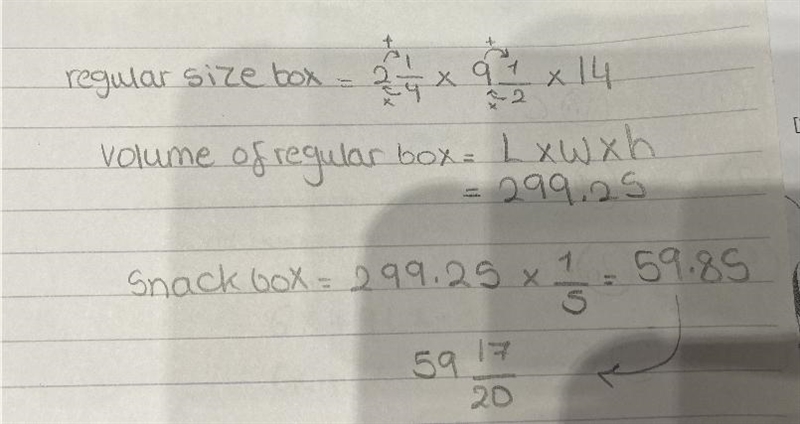 regular size box = 2 1/4 x 9 1/2 x 14
Volume of regular box = L x W x h
= 299.25
Snack box = 299.25 x 1/5 = 59.85
59 17/20